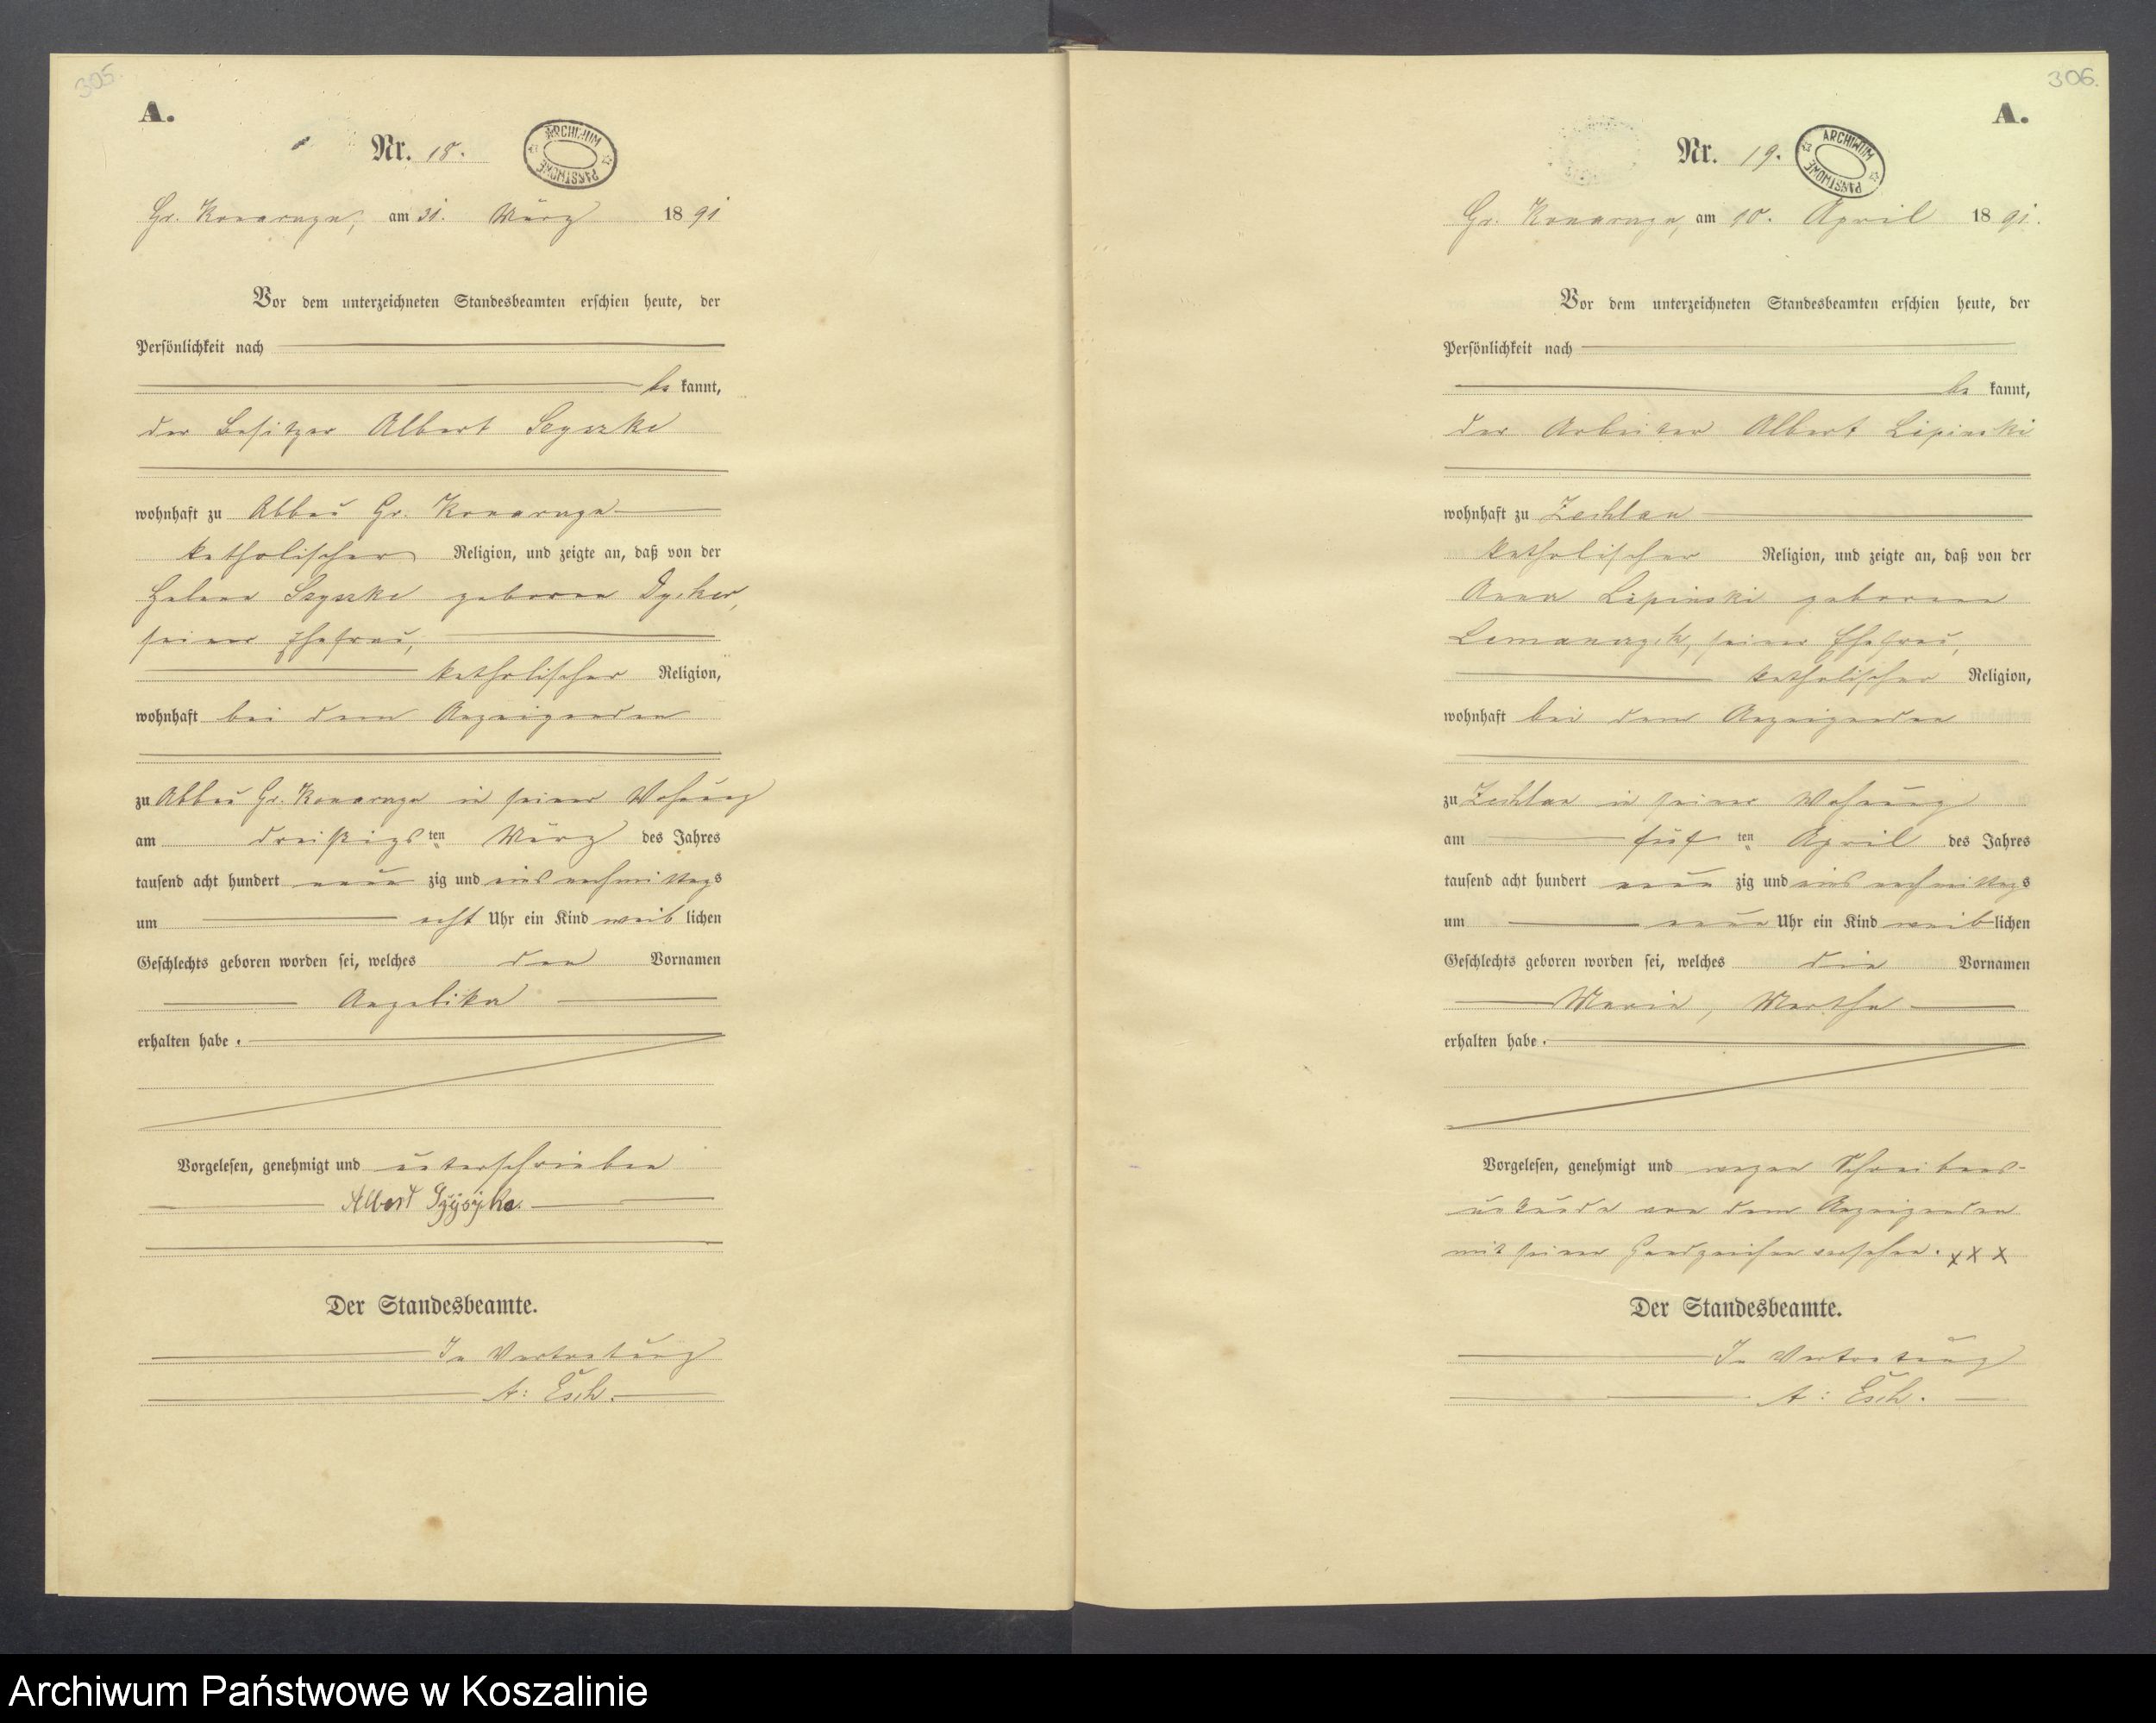 305.
A.
Nr. 18.
ARCHIWUM PAŃSTWOWE
Gr. Konarzyn, am 31. März 1891
Vor dem unterzeichneten Standesbeamten erschien heute, der
Persönlichkeit nach
be kannt,
der Besitzer Albert
wohnhaft zu Abbau Gr. Konarzyn
katholischer Religion, und zeigte an, daß von der
Helena geborene
seiner Ehefrau,
katholischer Religion,
wohnhaft bei dem Anzeigenden
zu Abbau Gr. Konarzyn in seiner Wohnung
am dreißigsten März des Jahres
tausend acht hundert neun zig und eins nachmittags
um acht Uhr ein Kind weib lichen
Geschlechts geboren worden sei, welches den Vornamen
Angelika
erhalten habe.
Vorgelesen, genehmigt und unterschrieben
Albert
Der Standesbeamte.
In Vertretung
A: Esch.
306.
A.
Nr. 19.
ARCHIWUM PAŃSTWOWE
Gr. Konarzyn, am 10. April 1891.
Vor dem unterzeichneten Standesbeamten erschien heute, der
Persönlichkeit nach
be kannt,
der Arbeiter Albert Lipinski
wohnhaft zu Zechlau
katholischer Religion, und zeigte an, daß von der
Anna Lipinski geborene
seiner Ehefrau,
katholischer Religion,
wohnhaft bei dem Anzeigenden
zu Zechlau in seiner Wohnung
am ten April des Jahres
tausend acht hundert neun zig und eins nachmittags
um neun Uhr ein Kind weib lichen
Geschlechts geboren worden sei, welches die Vornamen
Maria, Martha
erhalten habe.
Vorgelesen, genehmigt und wegen Schreibens-
unkunde von dem Anzeigenden
mit seinem Handzeichen versehen. x x x
Der Standesbeamte.
In Vertretung
A: Esch.
Archiwum Państwowe w Koszalinie